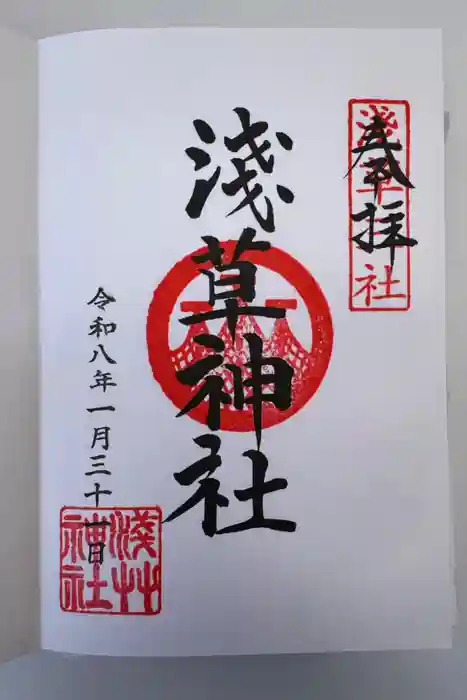 奉拝
浅草神社
浅草神社
令和八年一月三十一日
浅艸神社